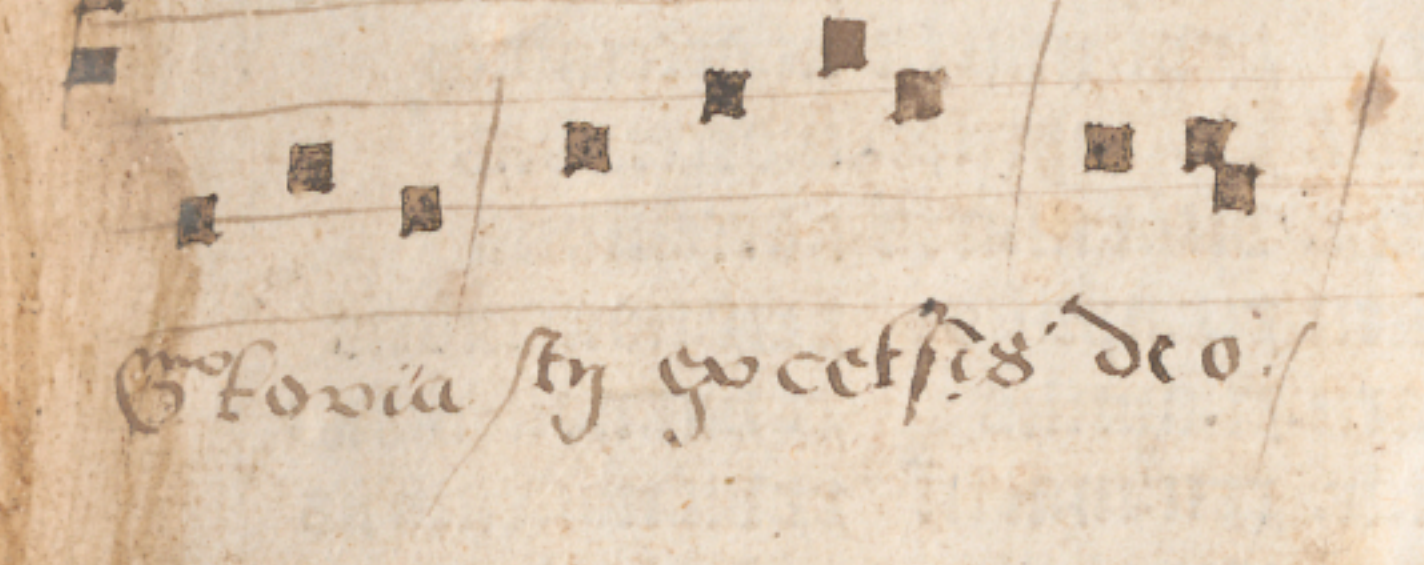 Gloria in excelsis deo.